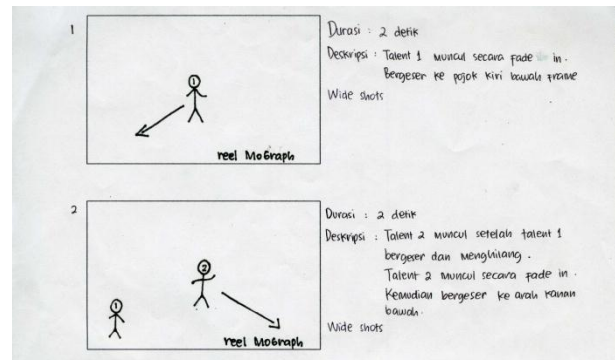 1
Durasi : 2 detik
Deskripsi : Talent 1 muncul secara fade in.
Bergeser ke pojok kiri bawah frame
Wide shots
1
reel MoGraph
2
Durasi : 2 detik
Deskripsi : Talent 2 muncul setelah talent 1
bergeser dan menghilang.
Talent 2 muncul secara fade in.
Kemudian bergeser ke arah kanan
bawah.
Wide shots
2
1
reel MoGraph